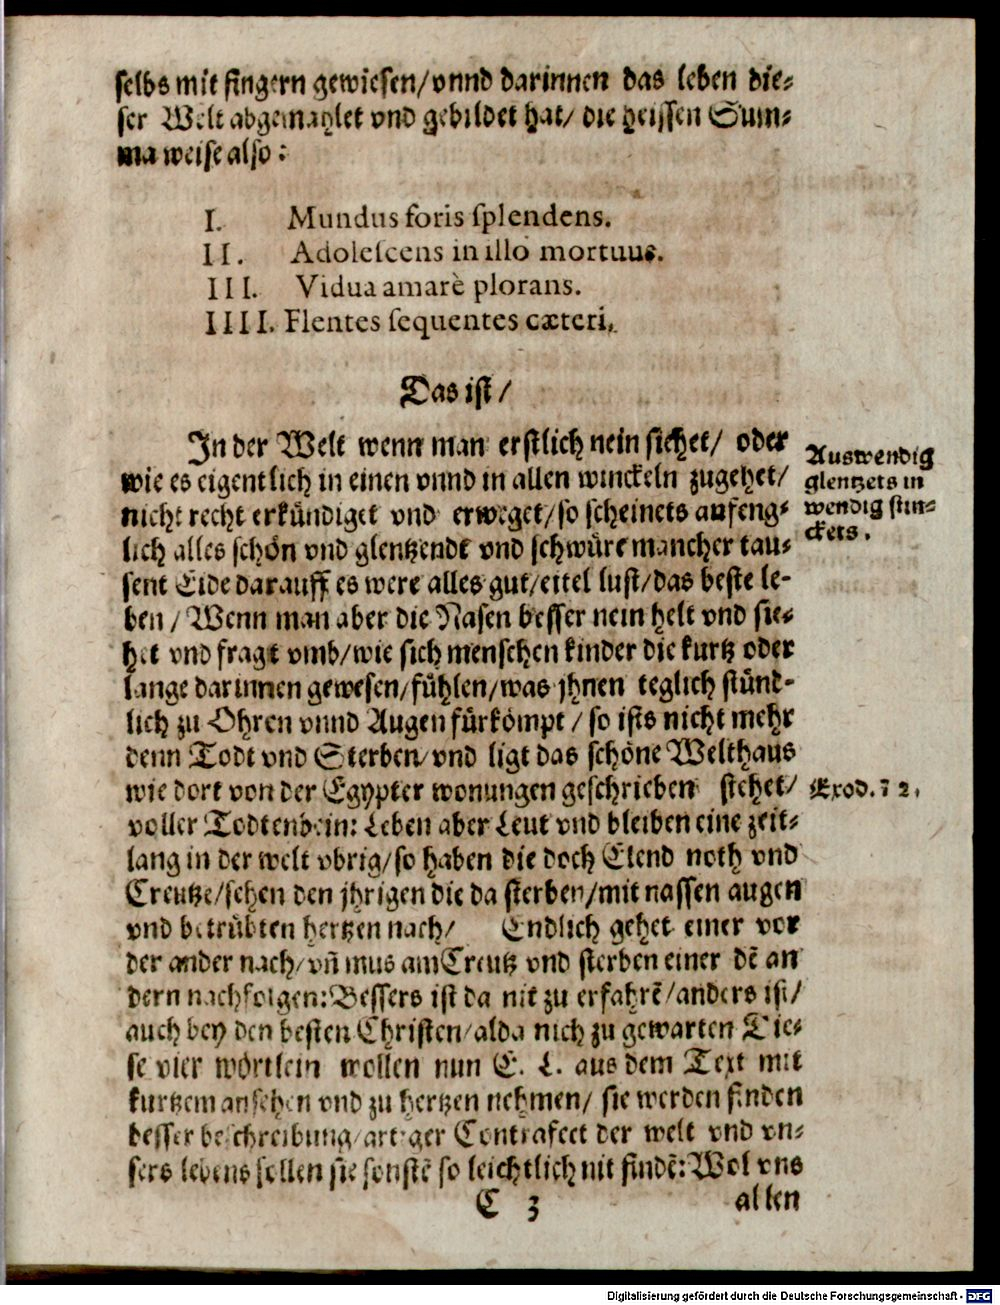 selbs mit fingern gewiesen/vnnd darinnen das leben die⸗
ser Welt abgemahlet vnd gebildet hat/ die heissen Sum⸗
ma weise also:
I. Mundus foris splendens.
II. Adolescens in illo mortuus.
III. Vidua amarè plorans.
IIII. Flentes sequentes cæteri.
Das ist/
In der Welt wenn man erstlich nein siehet/ oder
wie es eigentlich in einen vnnd in allen winckeln zugehet/
nicht recht erkündiget vnd erweget/so scheinets anfeng⸗
lich alles schön vnd glentzendt vnd schwüre mancher tau⸗
sent Eide darauff es were alles gut/eitel lust/das beste le-
ben/Wenn man aber die Nasen besser nein helt vnd sie⸗
het vnd fragt vmb/wie sich menschen kinder die kurtz oder
lange darinnen gewesen/fühlen/was jhnen teglich stünd-
lich zu Ohren vnnd Augen fürkömpt/so ists nicht mehr
denn Todt vnd Sterben/vnd ligt das schöne Welthaus
wie dort von der Egypter wonungen geschrieben stehet/
voller Todtenbein: Leben aber Leut vnd bleiben eine zeit⸗
lang in der welt vbrig/so haben die doch Elend noth vnd
Creutze/sehen den jhrigen die da sterben/mit nassen augen
vnd betrübten hertzen nach/ Endlich gehet einer vor
der ander nach/vñ mus am Creutz vnd sterben einer dē an
dern nachfolgen:Bessers ist da nit zu erfahrē/anders ist/
auch bey den besten Christen/alda nich zu gewarten Die⸗
se vier wörtlein wollen nun E. L. aus dem Text mit
kurtzem ansehen vnd zu hertzen nehmen/ sie werden finden
besser beschreibung/artiger Contrafect der welt vnd vn⸗
sers lebens sollen sie sonstē so leichtlich nit findē:Wol vns
C 3 allen
Auswendig
glentzets in
wendig stin⸗
ckets.
Exod. 12.
Digitalisierung gefördert durch die Deutsche Forschungsgemeinschaft - DFG